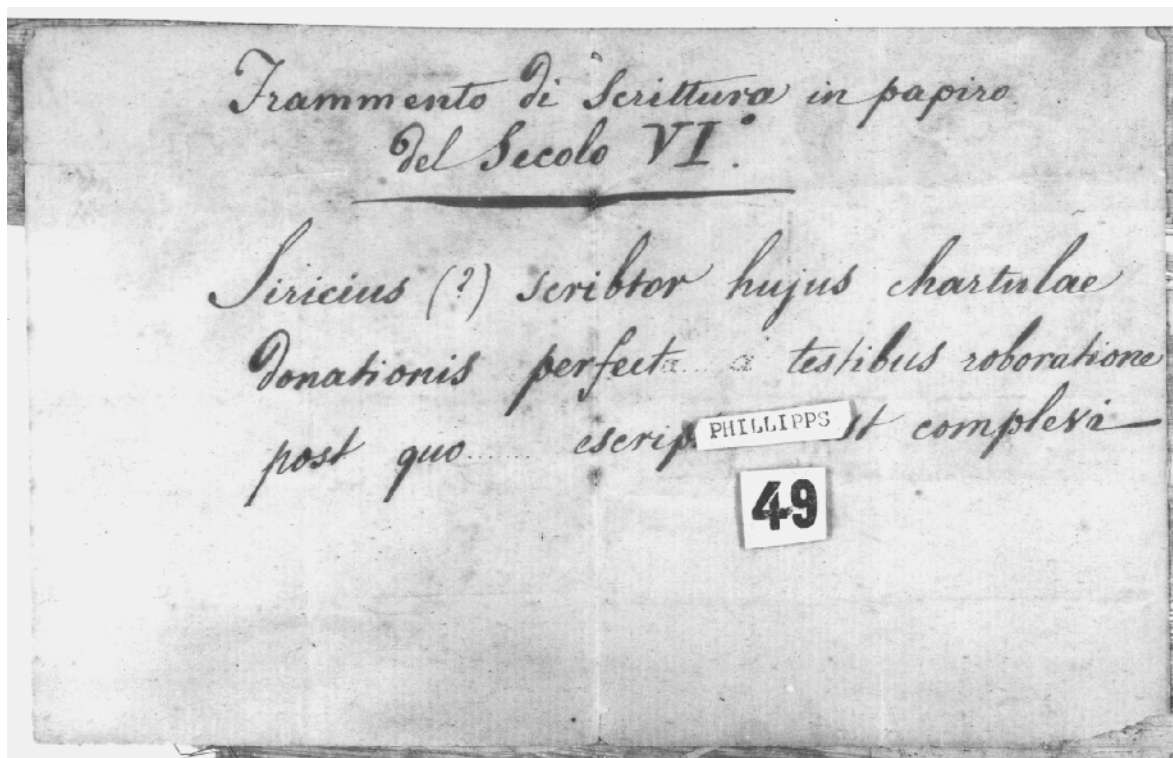 Frammento di Scrittura in papiro
del Secolo VI.°
Siricius (?) scribtor hujus chartulae
donationis perfect.... a testibus roboratione
post quo...... escrip st complevi
PHILLIPPS
49